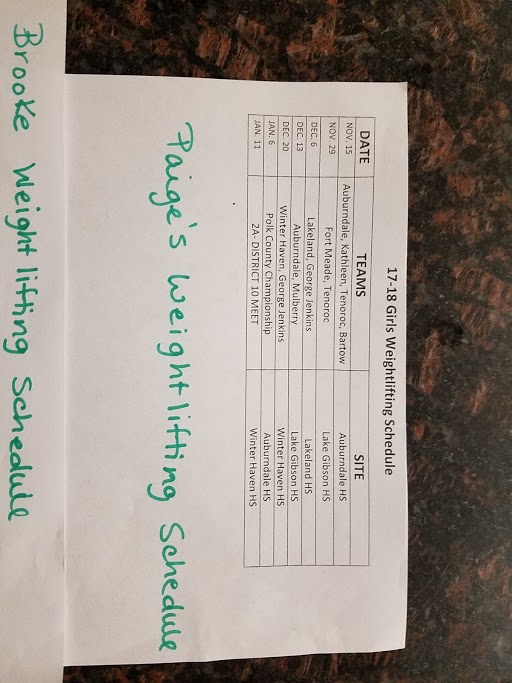 17-18 Girls Weightlifting Schedule
DATE TEAMS SITE
NOV. 15 Auburndale, Kathleen, Tenoroc, Bartow Auburndale HS
NOV. 29 Fort Meade, Tenoroc Lake Gibson HS
DEC. 6 Lakeland, George Jenkins Lakeland HS
DEC. 13 Auburndale, Mulberry Lake Gibson HS
DEC. 20 Winter Haven, George Jenkins Winter Haven HS
JAN. 6 Polk County Championship Auburndale HS
JAN. 11 2A- DISTRICT 10 MEET Winter Haven HS
Paige's Weightlifting Schedule
Brooke Weightlifting Schedule